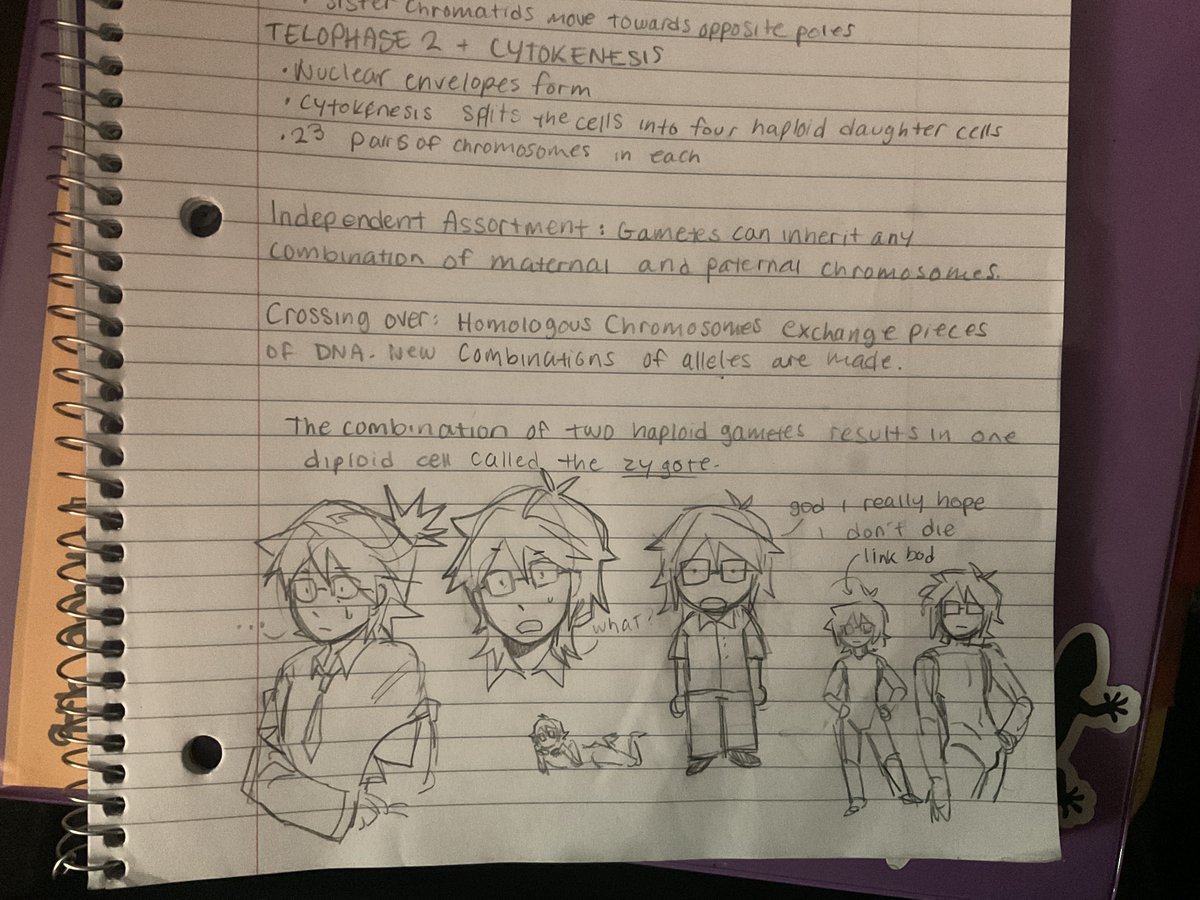 • Sister Chromatids move towards opposite poles
TELOPHASE 2 + CYTOKENESIS
• Nuclear envelopes form
• Cytokenesis splits the cells into four haploid daughter cells
• 23 pairs of chromosomes in each
Independent Assortment: Gametes can inherit any
combination of maternal and paternal chromosomes.
Crossing over: Homologous Chromosomes exchange pieces
of DNA. New combinations of alleles are made.
The combination of two haploid gametes results in one
diploid cell called the zygote.
god i really hope
i don't die
link bod
...
what?